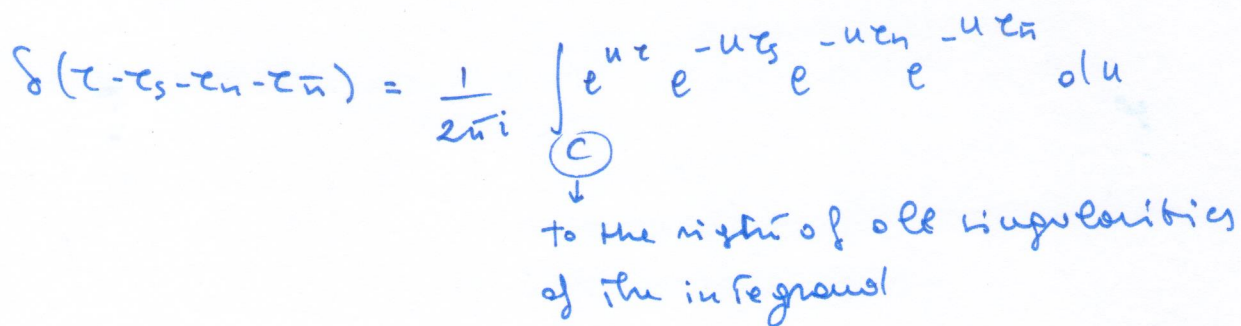 δ(τ-τ_s-τ_n-τ_n̄) = 1/(2πi) ∫_C e^{uτ} e^{-uτ_s} e^{-uτ_n} e^{-uτ_n̄} du
↓
to the right of all singularities
of the integrand